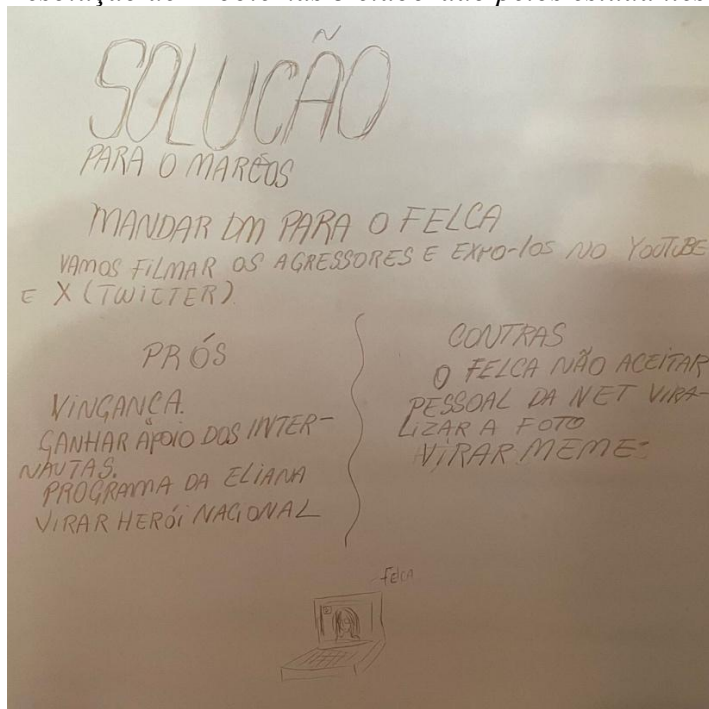 SOLUCÃO
PARA O MARCOS
MANDAR DM PARA O FELCA
VAMOS FILMAR OS AGRESSORES E EXPO-LOS NO YOUTUBE
E X (TWITTER)
PRÓS
VINGANCA.
GANHAR APOIO DOS INTER-
NAUTAS.
PROGRAMA DA ELIANA
VIRAR HERÓI NACIONAL
CONTRAS
O FELCA NÃO ACEITAR
PESSOAL DA NET VIRA-
LIZAR A FOTO
VIRAR MEME
FELCA